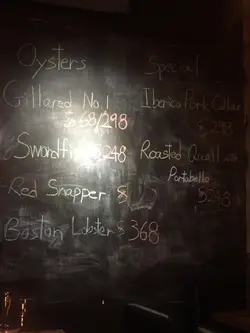 Oysters
Gillared No.1
$68/298
Swordfish $248
Red Snapper $
Boston Lobster $368
Special
Iberico Pork Collar
$298
Roasted Quail with
Portobello